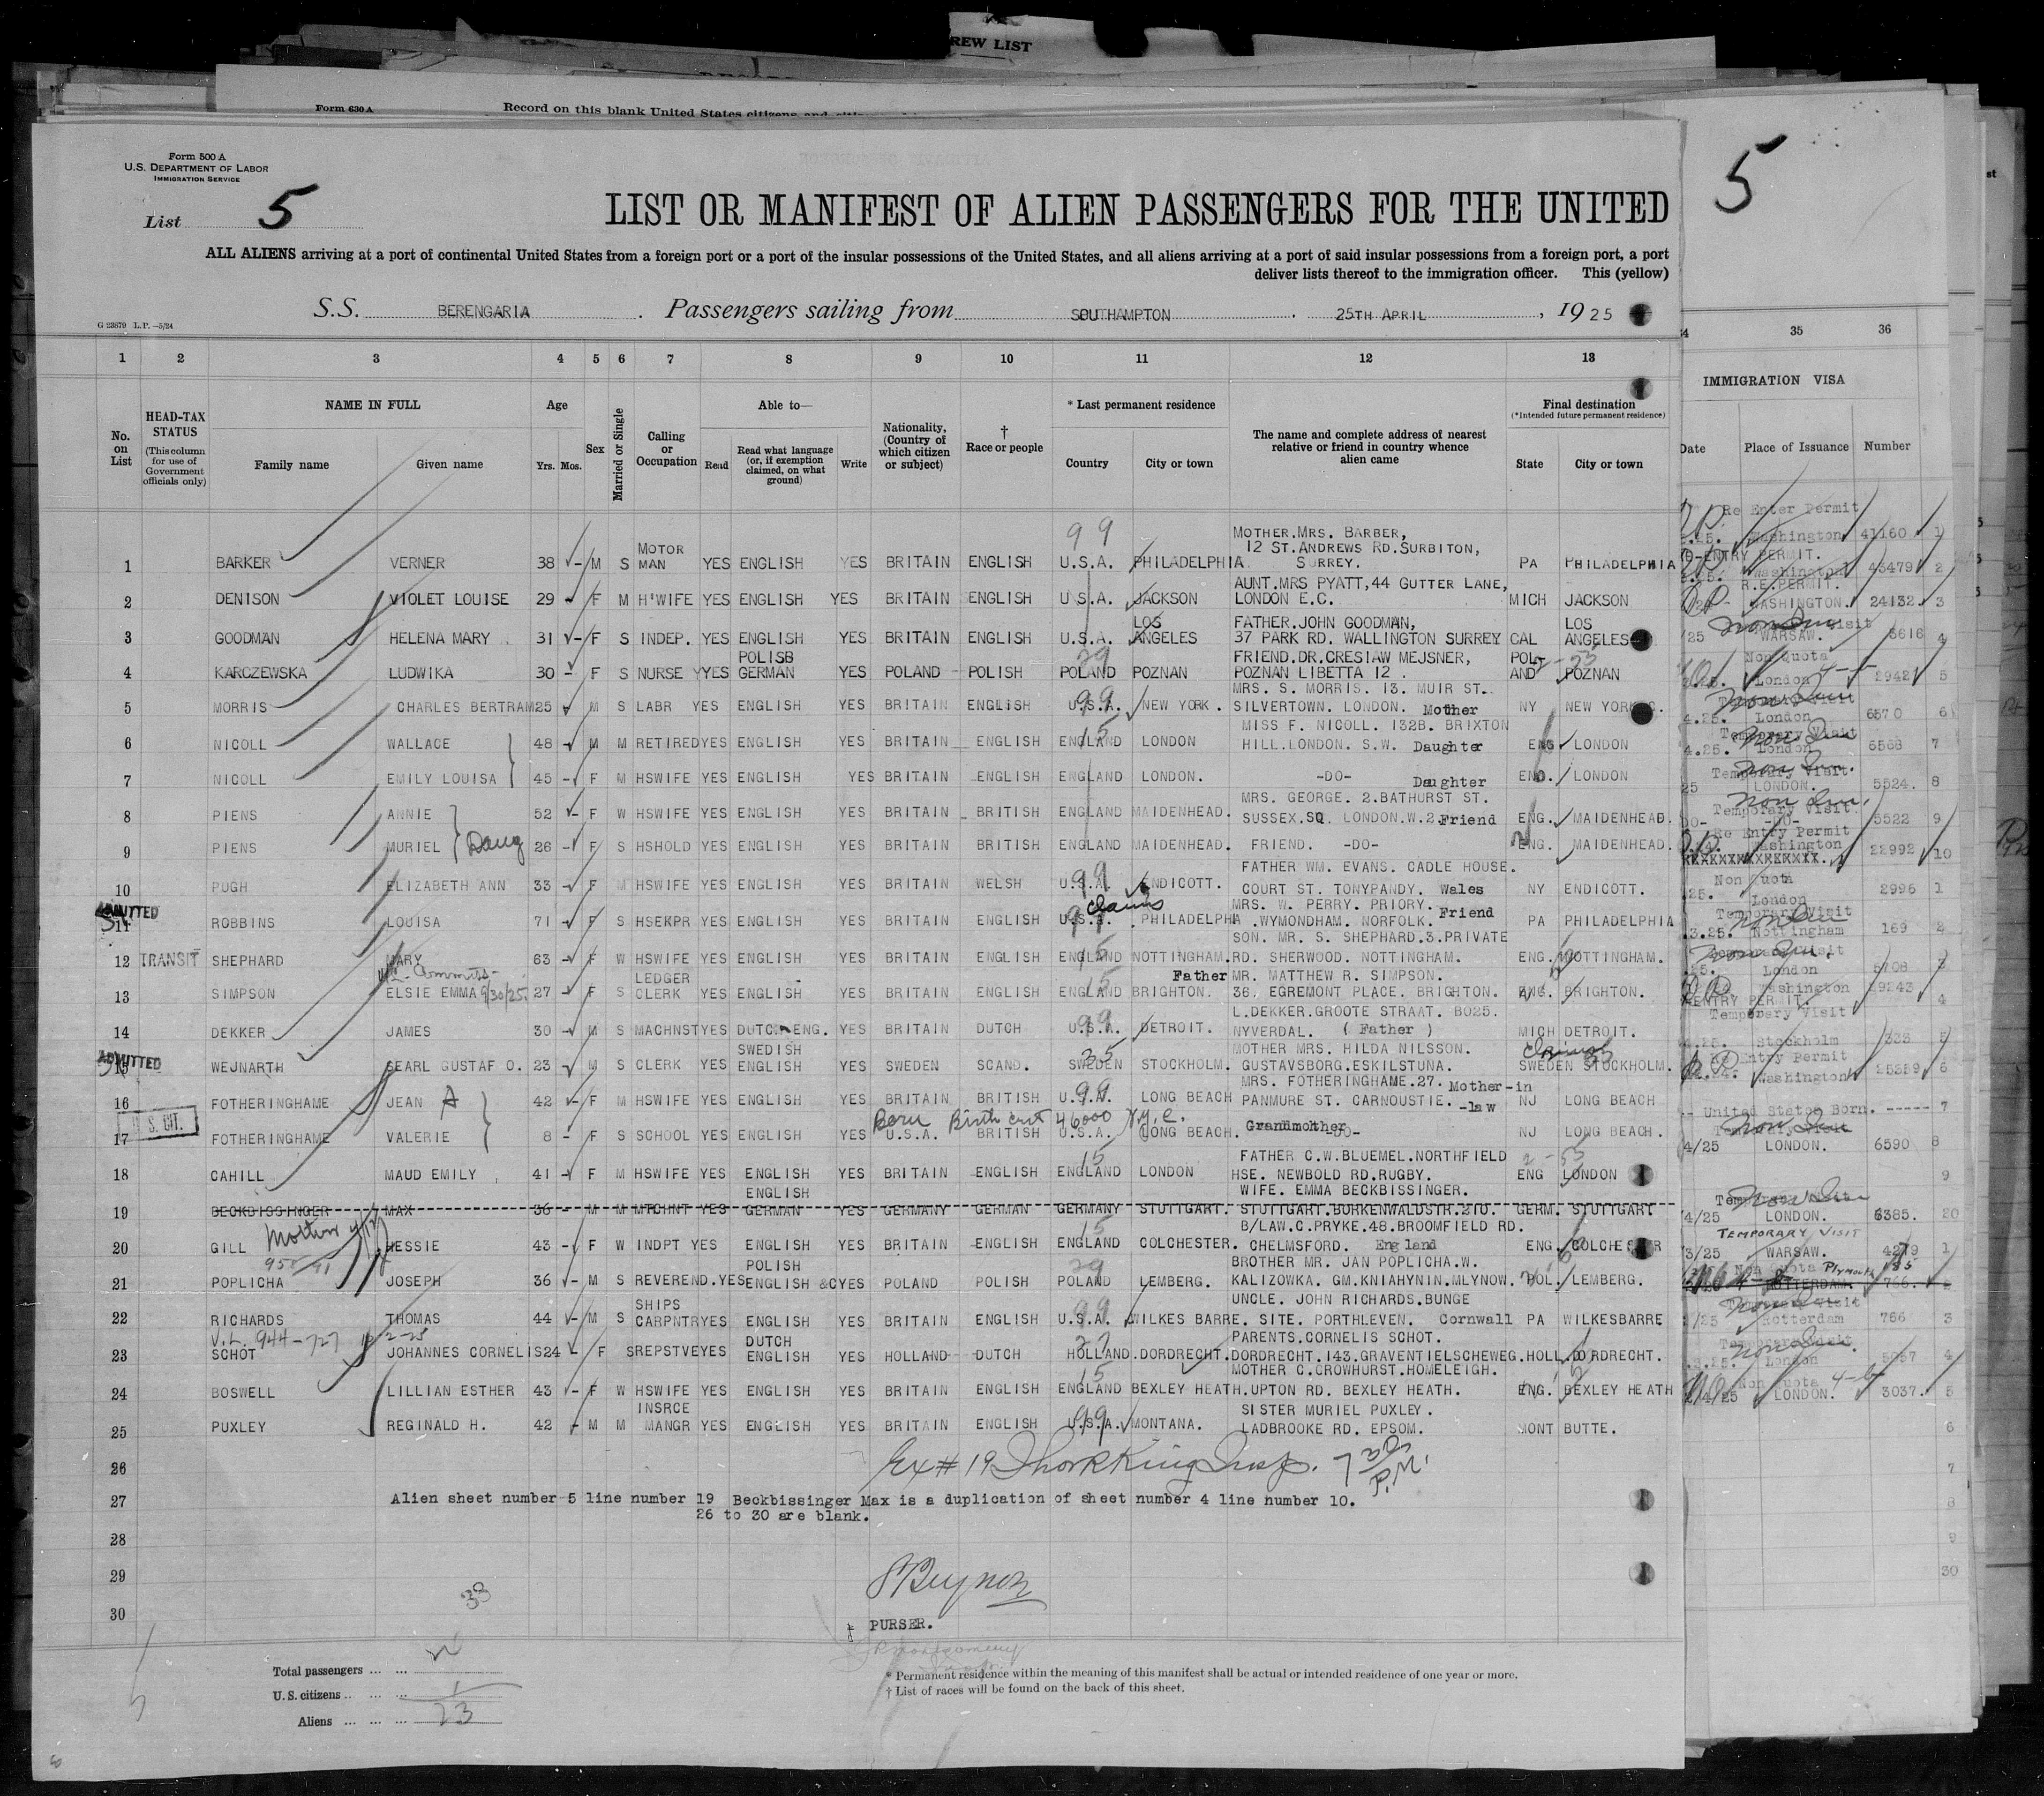 REW LIST
Form 630 A
Record on this blank United States citizens and
Form 500 A
U.S. DEPARTMENT OF LABOR
IMMIGRATION SERVICE
List 5
5
LIST OR MANIFEST OF ALIEN PASSENGERS FOR THE UNITED
ALL ALIENS arriving at a port of continental United States from a foreign port or a port of the insular possessions of the United States, and all aliens arriving at a port of said insular possessions from a foreign port, a port
deliver lists thereof to the immigration officer. This (yellow)
S.S. BERENGARIA. Passengers sailing from SOUTHAMPTON. 25TH APRIL, 1925
G 23879 L.P. —5/24
1 2 3 4 5 6 7 8 9 10 11 12 13 35 36
No. on List
HEAD-TAX STATUS (This column for use of Government officials only)
NAME IN FULL
Family name Given name
Age
Yrs. Mos.
Sex
Married or Single
Calling or Occupation
Able to—
Read Read what language (or, if exemption claimed, on what ground) Write
Nationality, (Country of which citizen or subject)
† Race or people
* Last permanent residence
Country City or town
The name and complete address of nearest relative or friend in country whence alien came
Final destination
(*Intended future permanent residence)
State City or town
IMMIGRATION VISA
Date Place of Issuance Number
1 BARKER VERNER 38 - M S MOTOR MAN YES ENGLISH YES BRITAIN ENGLISH U.S.A. PHILADELPHIA MOTHER.MRS. BARBER, 12 ST.ANDREWS RD.SURBITON, SURREY. PA PHILADELPHIA
2 DENISON VIOLET LOUISE 29 - F M H'WIFE YES ENGLISH YES BRITAIN ENGLISH U.S.A. JACKSON AUNT.MRS PYATT,44 GUTTER LANE, LONDON E.C. MICH JACKSON
3 GOODMAN HELENA MARY 31 - F S INDEP. YES ENGLISH YES BRITAIN ENGLISH U.S.A. LOS ANGELES FATHER.JOHN GOODMAN, 37 PARK RD. WALLINGTON SURREY CAL LOS ANGELES
4 KARCZEWSKA LUDWIKA 30 - F S NURSE YES POLISB GERMAN YES POLAND POLISH POLAND POZNAN FRIEND.DR.CRESIAW MEJSNER, POZNAN LIBETTA 12. POL-AND POZNAN
5 MORRIS CHARLES BERTRAM 25 M S LABR YES ENGLISH YES BRITAIN ENGLISH U.S.A. NEW YORK. MRS. S. MORRIS. 13. MUIR ST. SILVERTOWN. LONDON. Mother NY NEW YORK C.
6 NICOLL WALLACE 48 - M M RETIRED YES ENGLISH YES BRITAIN ENGLISH ENGLAND LONDON MISS F. NICOLL. 132B. BRIXTON HILL.LONDON. S.W. Daughter ENG LONDON
7 NICOLL EMILY LOUISA 45 - F M HSWIFE YES ENGLISH YES BRITAIN ENGLISH ENGLAND LONDON. -DO- Daughter ENG. LONDON
8 PIENS ANNIE 52 - F W HSWIFE YES ENGLISH YES BRITAIN BRITISH ENGLAND MAIDENHEAD. MRS. GEORGE. 2.BATHURST ST. SUSSEX.SQ. LONDON.W.2. Friend ENG. MAIDENHEAD.
9 PIENS MURIEL Daug 26 - F S HSHOLD YES ENGLISH YES BRITAIN BRITISH ENGLAND MAIDENHEAD. FRIEND. -DO- ENG. MAIDENHEAD.
10 PUGH ELIZABETH ANN 33 - F M HSWIFE YES ENGLISH YES BRITAIN WELSH U.S.A. ENDICOTT. FATHER WM. EVANS. CADLE HOUSE. COURT ST. TONYPANDY. Wales NY ENDICOTT.
ADMITTED
11 ROBBINS LOUISA 71 - F S HSEKPR YES ENGLISH YES BRITAIN ENGLISH U.S.A. Claims PHILADELPHIA MRS. W. PERRY. PRIORY. WYMONDHAM. NORFOLK. Friend PA PHILADELPHIA
12 TRANSIT SHEPHARD MARY 63 - F W HSWIFE YES ENGLISH YES BRITAIN ENGLISH ENGLAND NOTTINGHAM. SON. MR. S. SHEPHARD.3.PRIVATE RD. SHERWOOD. NOTTINGHAM. ENG. NOTTINGHAM.
13 SIMPSON ELSIE EMMA 9/30/25. 27 - F S LEDGER CLERK YES ENGLISH YES BRITAIN ENGLISH ENGLAND BRIGHTON. Father MR. MATTHEW R. SIMPSON. 36. EGREMONT PLACE. BRIGHTON. ENG. BRIGHTON.
14 DEKKER JAMES 30 - M S MACHNST YES DUTCH ENG. YES BRITAIN DUTCH U.S.A. DETROIT. L.DEKKER.GROOTE STRAAT. B025. NYVERDAL. ( Father ) MICH DETROIT.
ADMITTED
15 WEJNARTH SEARL GUSTAF O. 23 - M S CLERK YES SWEDISH ENGLISH YES SWEDEN SCAND. SWEDEN STOCKHOLM. MOTHER MRS. HILDA NILSSON. GUSTAVSBORG.ESKILSTUNA. SWEDEN STOCKHOLM.
16 FOTHERINGHAME JEAN A 42 - F M HSWIFE YES ENGLISH YES BRITAIN BRITISH U.S.A. LONG BEACH MRS. FOTHERINGHAME.27. PANMURE ST. CARNOUSTIE. Mother-in-law NJ LONG BEACH
U.S. CIT. Born Birth cert 46000 N.Y.C.
17 FOTHERINGHAME VALERIE 8 - F S SCHOOL YES ENGLISH YES U.S.A. BRITISH U.S.A. LONG BEACH. Grandmother -DO- NJ LONG BEACH.
18 CAHILL MAUD EMILY 41 - F M HSWIFE YES ENGLISH YES BRITAIN ENGLISH ENGLAND LONDON FATHER C.W.BLUEMEL.NORTHFIELD HSE. NEWBOLD RD.RUGBY. ENG LONDON
19 BECKBISSINGER MAX 36 - M M MTCHNT YES ENGLISH GERMAN YES GERMANY GERMAN GERMANY STUTTGART. WIFE. EMMA BECKBISSINGER. STUTTGART.BURKENWALDSTR.210. GERM. STUTTGART
20 GILL HESSIE 43 - F W INDPT YES ENGLISH YES BRITAIN ENGLISH ENGLAND COLCHESTER. B/LAW.C.PRYKE.48.BROOMFIELD RD. CHELMSFORD. England ENG. COLCHESTER
21 POPLICHA JOSEPH 36 - M S REVEREND. YES POLISH ENGLISH &C YES POLAND POLISH POLAND LEMBERG. BROTHER MR. JAN POPLICHA.W. KALIZOWKA. GM.KNIAHYNIN.MLYNOW. POL. LEMBERG.
22 RICHARDS THOMAS 44 - M S SHIPS CARPNTR YES ENGLISH YES BRITAIN ENGLISH U.S.A. WILKES BARRE. UNCLE. JOHN RICHARDS.BUNGE SITE. PORTHLEVEN. Cornwall PA WILKESBARRE
V.L. 944-727
23 SCHOT JOHANNES CORNELIS 24 - F S REPSTVE YES DUTCH ENGLISH YES HOLLAND DUTCH HOLLAND.DORDRECHT. PARENTS.CORNELIS SCHOT. DORDRECHT.143.GRAVENTIELSCHEWEG. HOLL DORDRECHT.
24 BOSWELL LILLIAN ESTHER 43 - F W HSWIFE YES ENGLISH YES BRITAIN ENGLISH ENGLAND BEXLEY HEATH. MOTHER C.CROWHURST.HOMELEIGH. UPTON RD. BEXLEY HEATH. ENG. BEXLEY HEATH
25 PUXLEY REGINALD H. 42 - M M INSRCE MANGR YES ENGLISH YES BRITAIN ENGLISH U.S.A. MONTANA. SISTER MURIEL PUXLEY. LADBROOKE RD. EPSOM. MONT BUTTE.
26
27 Alien sheet number 5 line number 19 Beckbissinger Max is a duplication of sheet number 4 line number 10.
26 to 30 are blank.
28
29
30 PURSER.
38
Total passengers
U.S. citizens 1
Aliens 23
* Permanent residence within the meaning of this manifest shall be actual or intended residence of one year or more.
† List of races will be found on the back of this sheet.
Re Enter Permit
Washington 41160 1
ENTRY PERMIT.
Washington 43479 2
R.E.PERMIT.
WASHINGTON. 24132 3
WARSAW. 5616 4
Non Quota
London 2942 5
Temporary Visit
4.25. London 6570 6
Temporary Visit
4.25. London 6568 7
Temporary Visit
25 LONDON. 5524. 8
Temporary Visit.
-DO- 5522 9
Re Entry Permit
Washington 22992 10
Non Quota
London 2996 1
Temporary Visit
.3.25. Nottingham 169 2
London 5708 3
Washington 29243 4
ENTRY PERMIT.
Temporary Visit
Stockholm 333 5
Re Entry Permit
Washington 25359 6
-- United States Born. ----- 7
4/25 LONDON. 6590 8
9
4/25 LONDON. 6385. 20
TEMPORARY VISIT
3/25 WARSAW. 4279 1
Non Quota Plymouth 185
ROTTERDAM. 766.
Temporary Visit
/25 Rotterdam 766 3
Temporary Visit
.3.25. London 5557 4
Non Quota
4/25 LONDON. 3037. 5
6
7
8
9
30